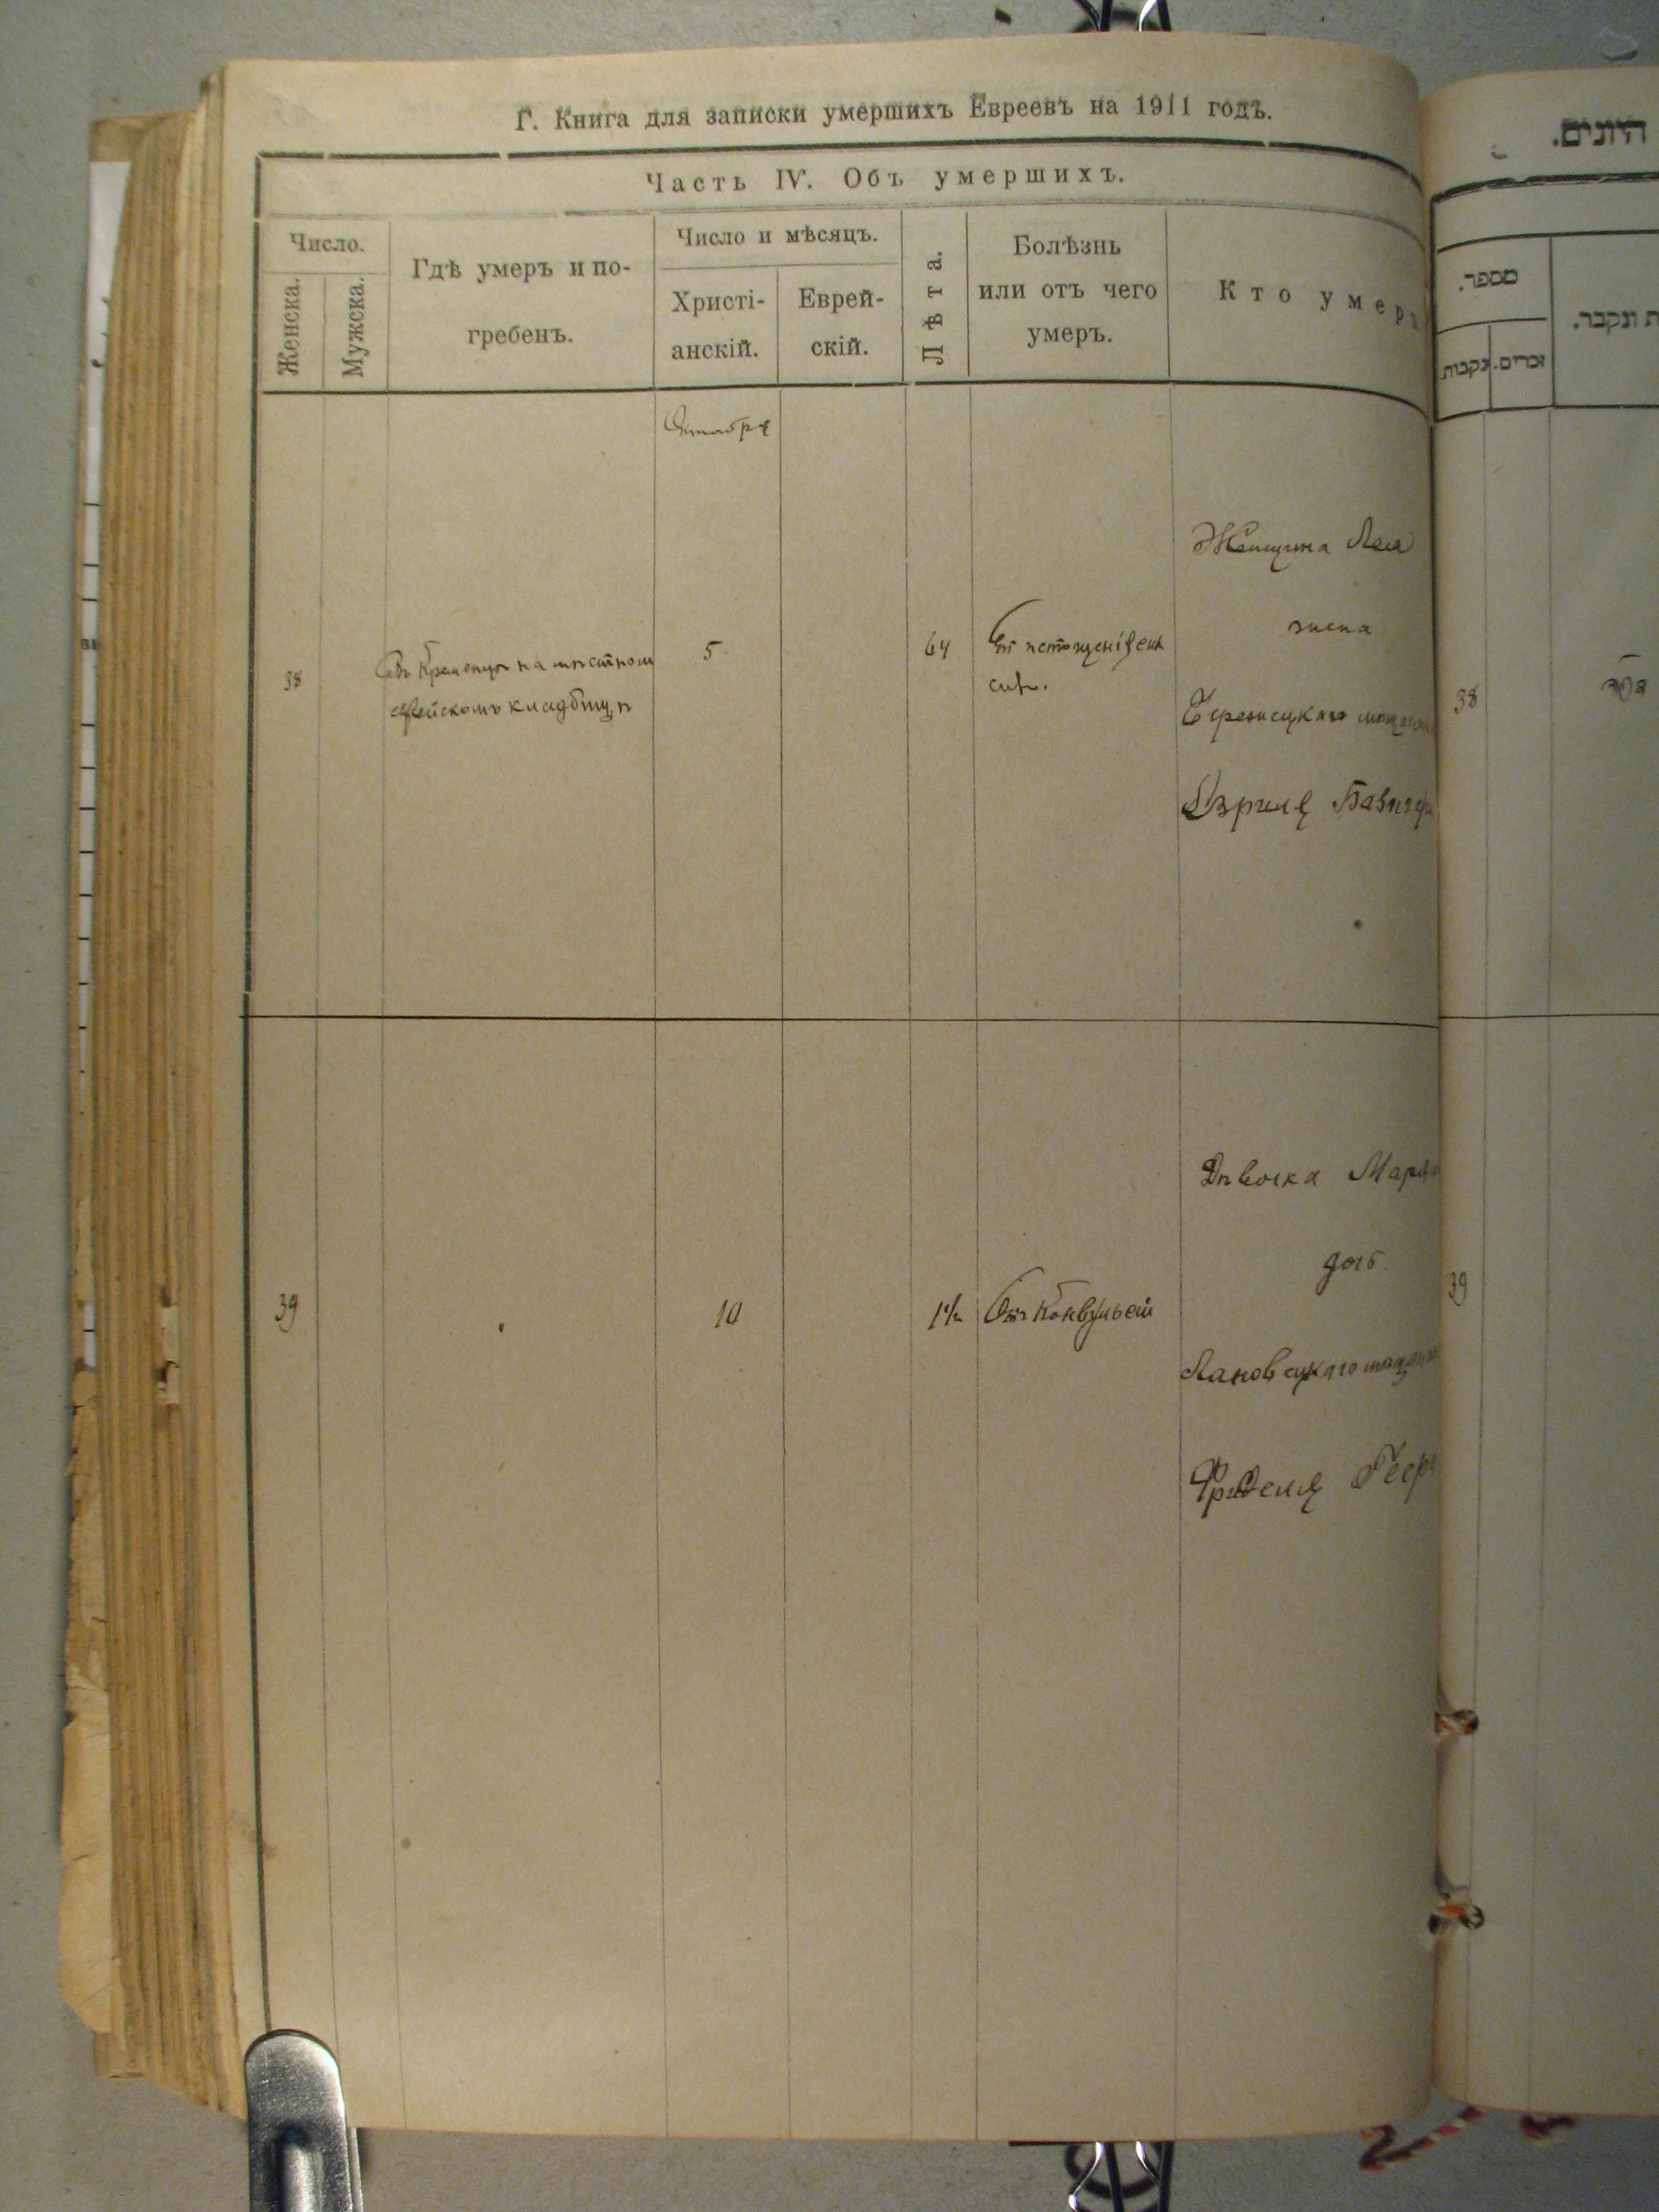 Г. Книга для записки умершихъ Евреевъ на 1911 годъ.
Часть IV. Объ умершихъ.
Число.
Женска.
Мужска.
Гдѣ умеръ и по-
гребенъ.
Число и мѣсяцъ.
Христі-
анскій.
Еврей-
скій.
Лѣта.
Болѣзнь
или отъ чего
умеръ.
Кто умеръ
Октября
38
Въ Кременцѣ на мѣстномъ
еврейскомъ кладбищѣ
5
64
От истощенія
силъ.
Женщина Лея
жена
мѣщанина
Азриля
39
10
1½
От Конвульсій
Дѣвочка
дочь
Лановецкаго мѣщанина
Фриделя
היונים.
מספר.
נקבות.
זכרים.
ת ונקבר.
38
39